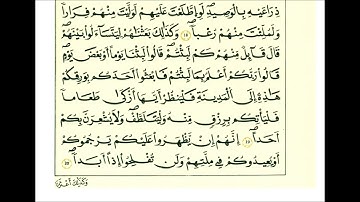 ذِرَاعَيْهِ بِالْوَصِيدِ لَوِ اطَّلَعْتَ عَلَيْهِمْ لَوَلَّيْتَ مِنْهُمْ فِرَارًا
وَلَمُلِئْتَ مِنْهُمْ رُعْبًا ۝١٨ وَكَذَٰلِكَ بَعَثْنَاهُمْ لِيَتَسَاءَلُوا بَيْنَهُمْ
قَالَ قَائِلٌ مِنْهُمْ كَمْ لَبِثْتُمْ قَالُوا لَبِثْنَا يَوْمًا أَوْ بَعْضَ يَوْمٍ
قَالُوا رَبُّكُمْ أَعْلَمُ بِمَا لَبِثْتُمْ فَابْعَثُوا أَحَدَكُمْ بِوَرِقِكُمْ
هَٰذِهِ إِلَى الْمَدِينَةِ فَلْيَنْظُرْ أَيُّهَا أَزْكَىٰ طَعَامًا
فَلْيَأْتِكُمْ بِرِزْقٍ مِنْهُ وَلْيَتَلَطَّفْ وَلَا يُشْعِرَنَّ بِكُمْ
أَحَدًا ۝١٩ إِنَّهُمْ إِنْ يَظْهَرُوا عَلَيْكُمْ يَرْجُمُوكُمْ
أَوْ يُعِيدُوكُمْ فِي مِلَّتِهِمْ وَلَنْ تُفْلِحُوا إِذًا أَبَدًا ۝٢٠
وَكَذَٰلِكَ أَعْثَرْنَا